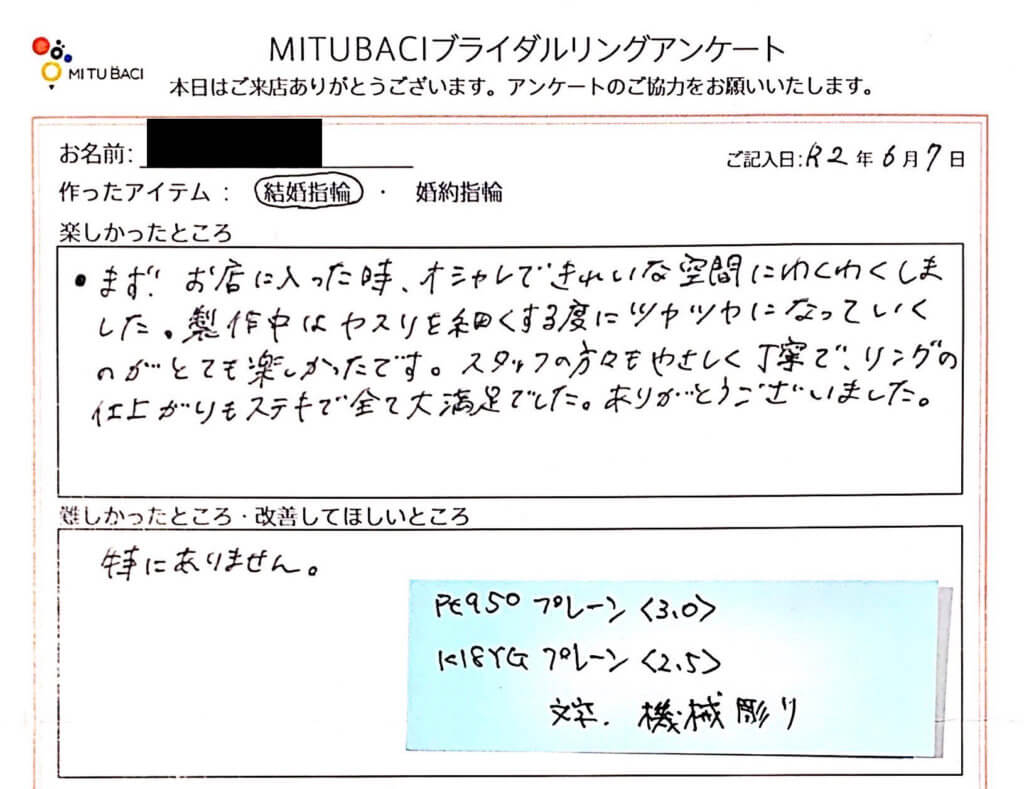 MITUBACI
MITUBACIブライダルリングアンケート
本日はご来店ありがとうございます。アンケートのご協力をお願いいたします。
お名前:
ご記入日:R2年6月7日
作ったアイテム : 結婚指輪 ・ 婚約指輪
楽しかったところ
・まず! お店に入った時、オシャレできれいな空間にわくわくしま
した。製作中はヤスリを細くする度にツヤツヤになっていく
のがとても楽しかったです。スタッフの方々もやさしく丁寧で、リングの
仕上がりもステキで全て大満足でした。ありがとうございました。
難しかったところ・改善してほしいところ
特にありません。
Pt950 プレーン <3.0>
K18YG プレーン <2.5>
機械彫り